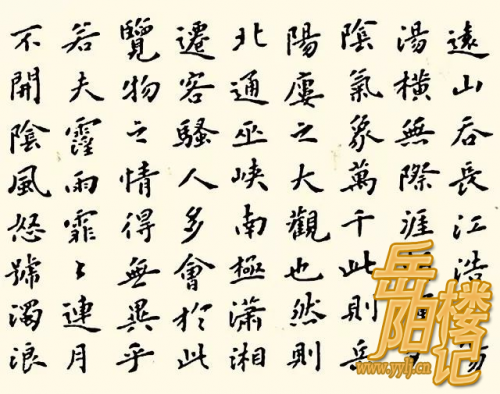 遠山吞長江浩
湯橫無際涯
陰氣象萬千此則岳
陽廔之大觀也然則
北通巫峽南極瀟湘
遷客騷人多會於此
覽物之情得無異乎
若夫霪雨霏〻連月
不開陰風怒號濁浪
岳阳楼记
www.yylj.cn